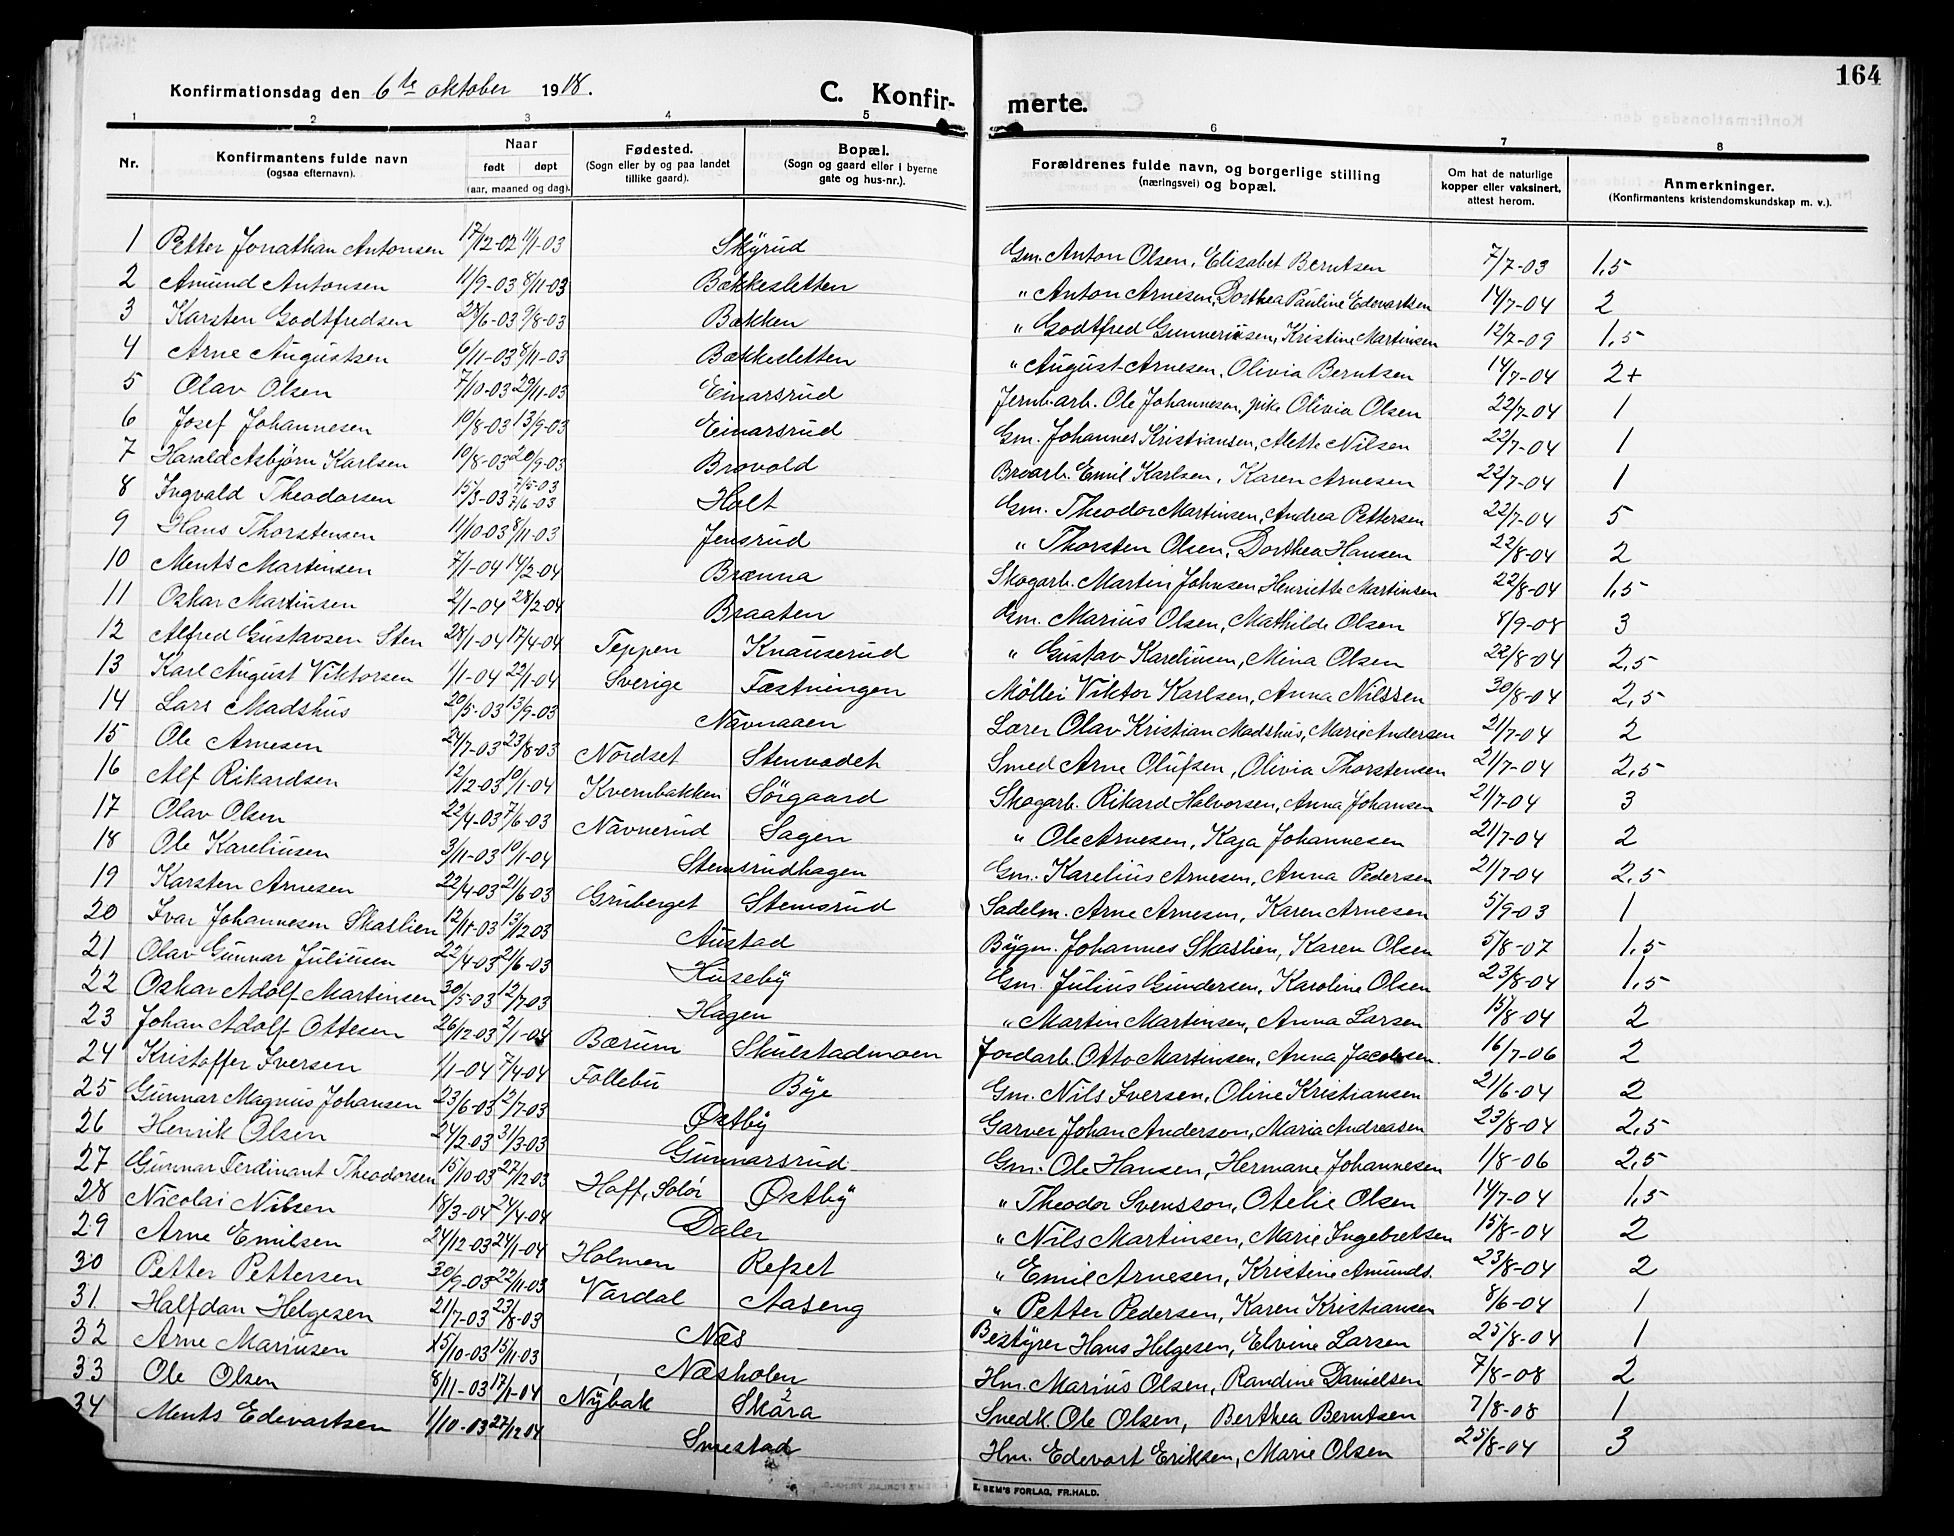 164
Konfirmationsdag den 6te oktober 1918.
C. Konfir- merte.
1 2 3 4 5 6 7 8
Nr. Konfirmantens fulde navn (ogsaa efternavn). Naar født døpt (aar, maaned og dag). Fødested. (Sogn eller by og paa landet tillike gaard). Bopæl. (Sogn og gaard eller i byerne gate og hus-nr.). Forældrenes fulde navn, og borgerlige stilling (næringsvei) og bopæl. Om hat de naturlige kopper eller vaksinert, attest herom. Anmerkninger. (Konfirmantens kristendomskundskap m. v.).
1 Petter Jonathan Antonsen 17/12-02 11/1-03 Skyrud Gm. Anton Olsen, Elisabet Berntsen 7/7-03 1,5
2 Amund Antonsen 11/9-03 8/11-03 Bækkesletten " Anton Arnesen, Dorthea Pauline Edevartsen 14/7-04 2
3 Karsten Godtfredsen 28/6-03 9/8-03 Bækken " Godtfred Gunneriusen, Kristine Martinsen 12/7-09 1,5
4 Arne Augustsen 6/11-03 8/11-03 Bækkesletten " August Arnesen, Olivia Berntsen 14/7-04 2+
5 Olav Olsen 7/10-03 29/11-03 Einarsrud Jernb.arb. Ole Johannesen, pike Olivia Olsen 22/7-04 1
6 Josef Johannesen 10/8-03 13/9-03 Einarsrud Gm. Johannes Kristiansen, Mette Nilsen 22/7-04 1
7 Harald Asbjørn Karlsen 19/8-03 20/9-03 Brovold Broarb. Emil Karlsen, Karen Arnesen 22/7-04 1
8 Ingvald Theodorsen 15/3-03 7/5-03 7/6-03 Holt Gm. Theodor Martinsen, Andrea Pettersen 22/7-04 5
9 Hans Thorstensen 11/10-03 8/11-03 Jensrud " Thorsten Olsen, Dorthea Hansen 22/8-04 2
10 Ments Martinsen 7/1-04 14/2-04 Brænna Skogarb. Martin Johnsen, Henriette Martinsen 22/8-04 1,5
11 Oskar Martinsen 2/1-04 28/2-04 Braaten Gm. Marius Olsen, Mathilde Olsen 8/9-08 3
12 Alfred Gustavsen Sten 28/1-04 17/4-04 Teppen Knauserud " Gustav Kareliusen, Mina Olsen 22/8-04 2,5
13 Karl August Viktorsen 1/1-04 22/1-04 Sverige Fæstningen Møller Viktor Karlsen, Anna Nilssen 30/8-04 2,5
14 Lars Madshus 20/5-03 13/9-03 Navnaaen Lærer Olav Kristian Madshus, Marie Andersen 21/7-04 2
15 Ole Arnesen 24/7-03 23/8-03 Nordset Stenvadet Smed Arne Olufsen, Olivia Thorstensen 21/7-04 2,5
16 Alf Rikardsen 12/12-03 10/1-04 Kvernbakken Sørgaard Skogarb. Rikard Halvorsen, Anna Johansen 21/7-04 3
17 Olav Olsen 22/4-03 7/6-03 Navnerud Sagen " Ole Arnesen, Kaja Johannesen 21/7-04 2
18 Ole Kareliusen 3/11-03 10/1-04 Stemsrudhagen Gm. Karelius Arnesen, Anna Pedersen 21/7-04 2,5
19 Karsten Arnesen 22/4-03 21/6-03 Gruberget Stemsrud Sadelm. Arne Arnesen, Karen Arnesen 5/9-03 1
20 Ivar Johannesen Skaslien 12/11-03 13/12 03 Austad Bygm. Johannes Skaslien, Karen Olsen 5/8-07 1,5
21 Olav Gunnar Juliusen 22/4-03 21/6-03 Huseby Gm. Julius Gundersen, Karoline Olsen 23/8-04 1,5
22 Oskar Adolf Martinsen 30/5-03 12/7-03 Hagen " Martin Martinsen, Anna Larsen 15/8-04 2
23 Johan Adolf Ottesen 26/12-03 2/1-04 Bærum Skulstadmoen Jordarb. Otto Martinsen, Anna Jacobsen. 16/7-06 2
24 Kristoffer Iversen 1/1-04 7/4-04 Follebu Bye Gm. Nils Iversen, Oline Kristiansen 21/6-04 2
25 Gunnar Magnus Johansen 23/6-03 12/7-03 Østby Garver Johan Anderson, Maria Andreasen 23/8-04 2,5
26 Henrik Olsen 24/2-03 31/3-03 Gunnarsrud Gm. Ole Hansen, Hermane Johannesen 1/8-06 2,5
27 Gunnar Ferdinant Theodorsen 15/10-03 27/12-03 Hoff, Solør Østby " Theodor Svensson, Otelie Olsen 14/7-04 1,5
28 Nicolai Nilsen 18/3-04 24/4-04 Daler " Nils Martinsen, Marie Ingebretsen 15/8-04 2
29 Arne Emilsen 24/12-03 24/1-04 Holmen Refset " Emil Arnesen, Kristine Amunds. 23/8-04 2
30 Petter Pettersen 30/9-03 22/11-03 Vardal Aaseng " Petter Pedersen, Karen Kristiansen 8/6-04 1
31 Halfdan Helgesen 21/7-03 23/8-03 Næs Bestyrer Hans Helgesen, Elvine Larsen 25/8-04 1
32 Arne Mariusen 15/10-03 15/11-03 Næsholen Hm. Marius Olsen, Randine Danielsen 7/8-08 2
33 Ole Olsen 8/11-03 17/1-04 Nybak Skara Snedk. Ole Olsen, Berthea Berntsen 7/8-08 1
34 Ments Edevartsen 1/10-03 27/12 04 Smestad Hm. Edevart Eriksen, Marie Olsen 25/8-04 3
E. SEM'S FORLAG, FR.HALD.